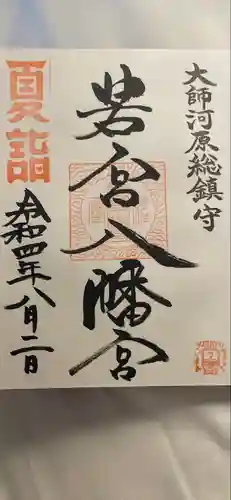 大師河原総鎮守
若宮八幡宮
夏詣
令和四年八月二日